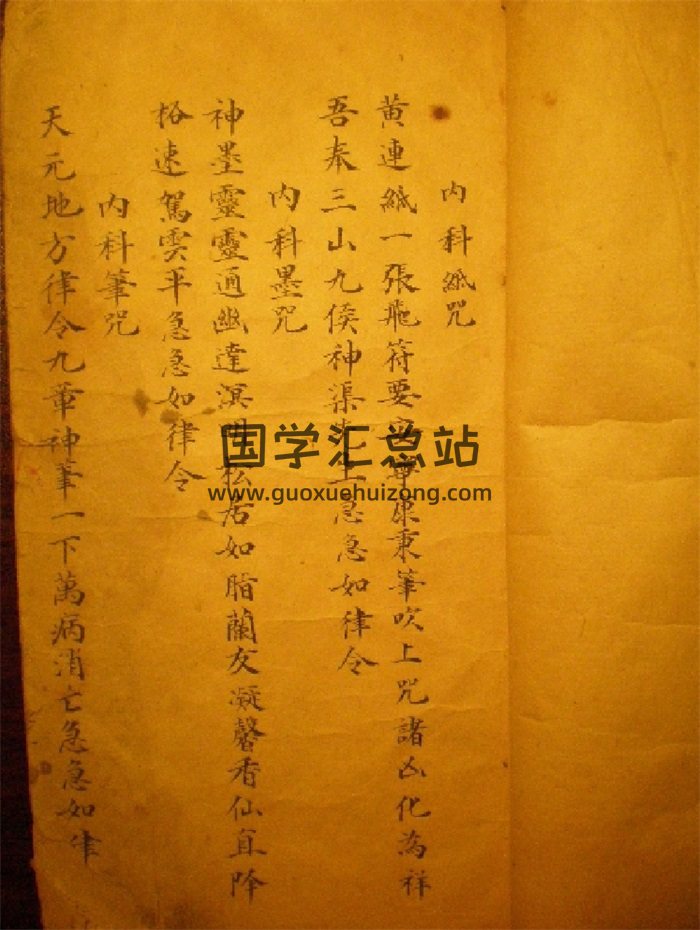 内科紙咒
黄連紙一張 符要 寧 秉筆吹上咒諸凶化為祥
吾奉三山九侯神 急急如律令
内科墨咒
神墨靈靈通幽達溟 如脂蘭友凝馨香仙 降
格速駕雲平急急如律令
内科筆咒
天元地方律令九章神筆一下萬病消亡急急如律
国学汇总站
www.guoxuehuizong.com